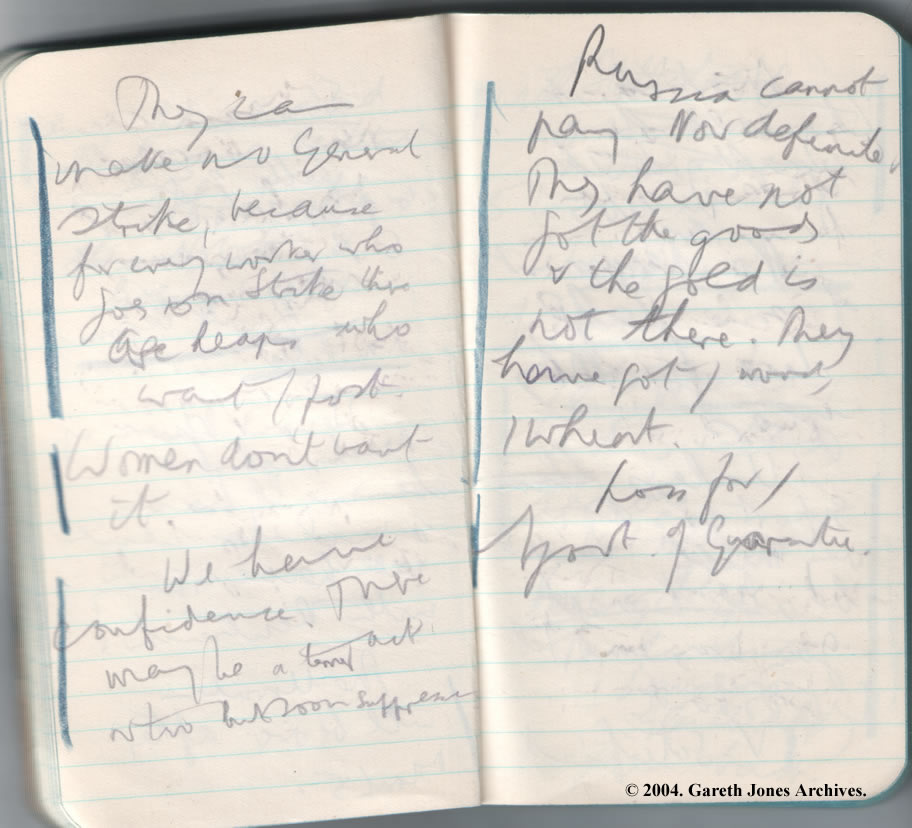 They can
make no General
Strike, because
for every worker who
goes on Strike there
are heaps who
want / post.
Women don't want
it.
We have
confidence. There
may be a terror act
or two but soon suppressed
Russia cannot
pay Now definite.
They have not
got the goods
& the gold is
not there. They
have got / wood,
/ wheat.
Loss for /
of Guarantee.
© 2004. Gareth Jones Archives.